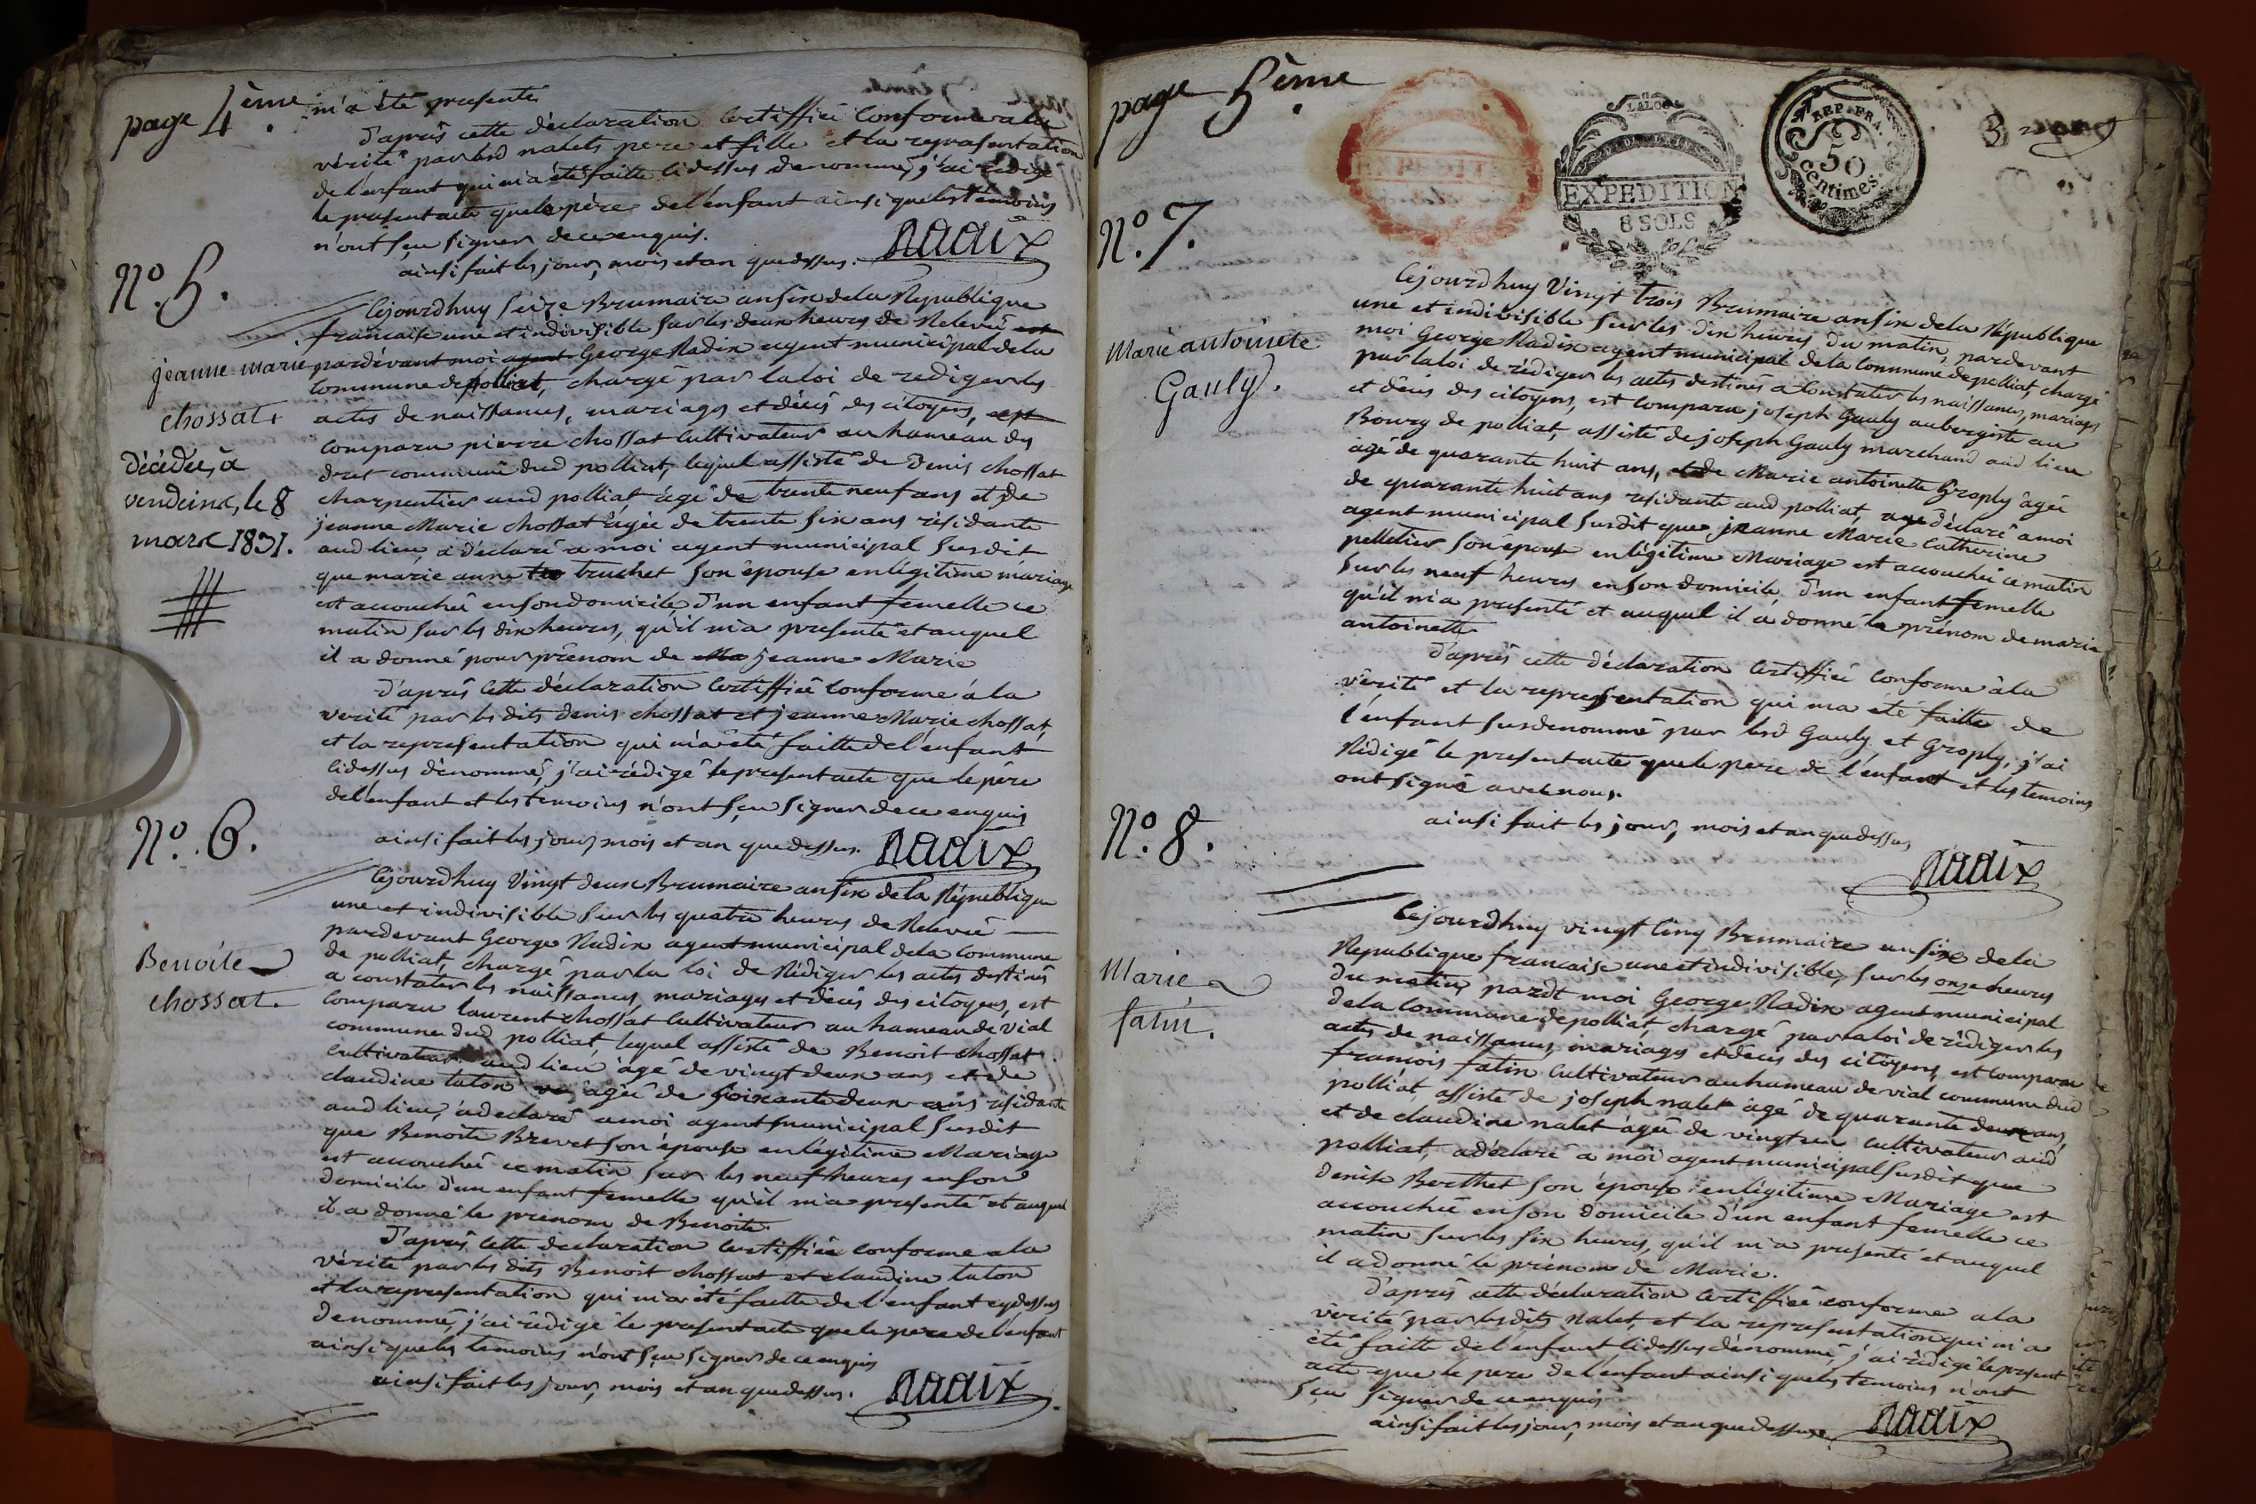 page 4ème
m'a été presenté
D'aprés cette déclaration certiffiée conforme a la
vérité par lesd nalets pere et fille et la representation
de l'enfant qui m'a été faitte cidessus denommé, j'ai rédigé
le present acte que le père de l'enfant ainsi que les témoins
n'ont sçu signer de ce enquis.
ainsi fait les jour, mois et an que dessus. Nadix
N.o 5.
jeanne marie
chossat
décédée, à
vendeins, le 8
mars 1831.
Cejourdhuy seize Brumaire an six de la République
francaise une et indivisible sur les deux heures de Relevée est
pardevant moi agent George Nadix agent municipal de la
commune de polliat, chargé par la loi de rediger les
actes de naissances, mariages et décés des citoyens, est
comparu pierre chossat cultivateur au hameau des
dret commune dud polliat, lequel assisté de Denis chossat
charpentier aud polliat âgé de trente neuf ans et de
jeanne Marie chossat âgée de trente six ans résidante
aud lieu, a déclaré a moi agent municipal susdit
que marie anne truchet son épouse en légitime mariage
est accouchée en son domicile d'un enfant femelle ce
matin sur les dix heures, qu'il m'a presenté et auquel
il a donné pour prénom de Ma jeanne Marie
D'aprés cette déclaration certiffiée conforme á la
verité par les dits denis chossat et jeanne Marie chossat,
et la representation qui m'a été faitte de l'enfant
cidessus dénommé, j'ai rédigé le present acte que le pére
de l'enfant et les temoins n'ont sçu signer de ce enquis
ainsi fait les jour, mois et an que dessus. Nadix
N.o 6.
Benoite
chossat.
Cejourdhuy Vingt deux Brumaire an six de la République
une et indivisible sur les quatre heures de Relevée
pardevant George Nadix agent municipal de la commune
de polliat, chargé par la loi de Rédiger les actes destinés
a constater les naissances, mariages et décés des citoyens, est
comparu laurent chossat cultivateur au hameau de vial
commune dud polliat, lequel assisté de Benoit chossat
cultivateur aud lieu âgé de vingt deux ans et de
claudine tuton âgée de soixante deux ans résidante
aud lieu, a déclaré a moi agent municipal susdit
que Benoite Brevet son épouse en légitime Mariage
est accouchée ce matin sur les neuf heures en son
domicile d'un enfant femelle qu'il m'a presenté et auquel
il a donné le prenom de Benoite
D'aprés cette déclaration certiffiée conforme a la
vérité par les dits Benoit chossat et claudine tuton
et la representation qui m'a été faitte de l'enfant cydessus
denommé, j'ai rédigé le present acte que le pere de l'enfant
ainsi que les temoins n'ont sçu signer de ce enquis
ainsi fait les jour, mois et an que dessus. Nadix
page 5ème
EXPEDITION
LALOI
EXPEDITION
8 SOLS
REP. FRA.
50
Centimes.
3
N.o 7.
Marie antoinete
Gauly.
Cejourdhuy Vingt trois Brumaire an six de la République
une et indivisible sur les dix heures du matin, pardevant
moi George Nadix agent municipal de la commune de polliat, chargé
par la loi de rédiger les actes destinés a constater les naissances, mariages
et décés des citoyens, est comparu joseph Gauly aubergiste au
Bourg de polliat, assisté de joseph Gauly marchand aud lieu
âgé de quarante huit ans, et de Marie antoinette Groply âgée
de quarante huit ans résidante aud polliat, a déclaré a moi
agent municipal susdit que jeanne Marie Catherine
pelletier son épouse en légitime Mariage est accouchée ce matin
sur les neuf heures en son domicile d'un enfant femelle
qu'il m'a presenté et auquel il a donné le prénom de marie
antoinette
D'aprés cette déclaration certiffiée conforme a la
vérité et la representation qui m'a été faitte de
l'enfant susdenommé par lesd Gauly et Groply, j'ai
Rédigé le present acte que le pere de l'enfant et les temoins
ont signé avec nous.
ainsi fait les jour, mois et an que dessus
Nadix
N.o 8.
Marie
fatin.
Cejourdhuy vingt cinq Brumaire an six de la
République francaise une et indivisible, sur les onze heures
du matin, pardt moi George Nadix agent municipal
de la commune de polliat, chargé par la loi de rédiger les
actes de naissances, mariages et décés des citoyens, est comparu
francois fatin cultivateur au hameau de vial commune dud
polliat, assisté de joseph nalet âgé de quarante deux ans,
et de claudine nalet âgée de vingt un cultivateur aud
polliat, a déclaré a moi agent municipal susdit que
denise Berthet son épouse en légitime Mariage est
accouchée en son domicile d'un enfant femelle ce
matin sur les six heures, qu'il m'a presenté et auquel
il a donné le prénom de Marie.
D'aprés cette déclaration certiffiée conforme a la
vérité par les dits nalet, et la representation qui m'a
été faitte de l'enfant cidessus dénommé, j'ai rédigé le present
acte que le pere de l'enfant ainsi que les temoins n'ont
sçu signer de ce enquis
ainsi fait les jour, mois et an que dessus. Nadix